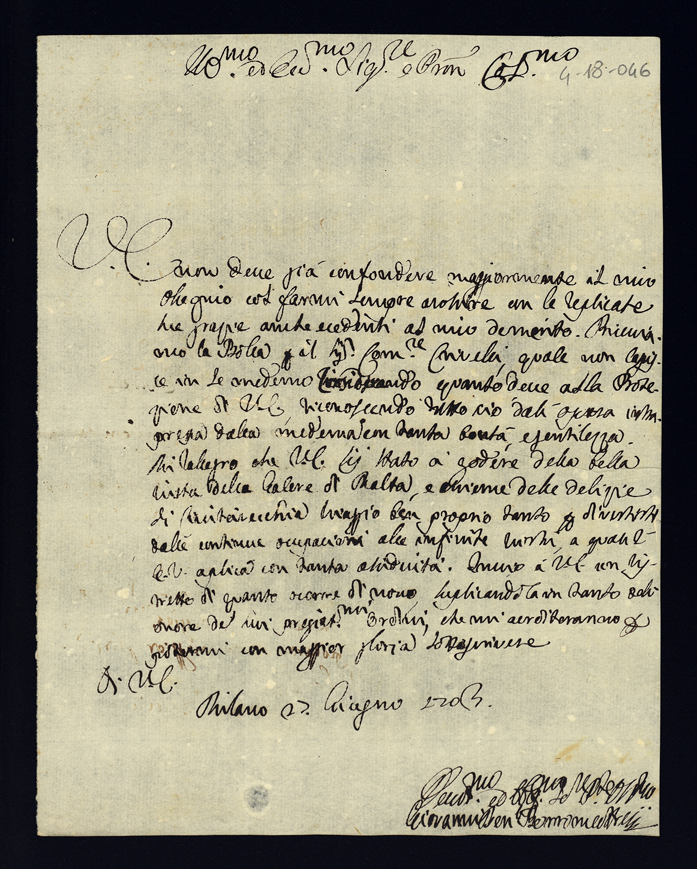 Ill.mo ed Ecc.mo Sig.re e Pron Col.mo
4-18-046
V.E. non deve già confondere maggiormente il mio
ossequio col farmi sempre arossire con le replicate
sue grazie antecedenti al mio demerito. Riceverà
mo la Bolla p il Sig.r Com.re quale non capi-
ce in se medemo considerando quanto deve alla Prote-
zione di V.E. riconoscendo tutto ciò dall opera intra-
presa dalla medema con tanta bontà, e gentilezza.
Mi rallegro che V.E. sij stato a godere della bella
vista delle Galere di Malta, e insieme delle delizie
di Civitavecchia viaggio ben proprio tanto p divertirsi
dalle continue occupazioni alle infinite virtù, a quali l
E.V. aplica con tanta assiduità. Invio à V.E. un vi-
glietto di quanto ocorre di novo suplicandola in tanto dell
onore de suoi pregiat.mi ordini, che mi acrediteranno p
potermi con maggior gloria sottoscrivere
D. V.E.
Milano 27. Giugno 1703.
Devot.mo ed Obl.mo
Giovanni Ben Borromeo